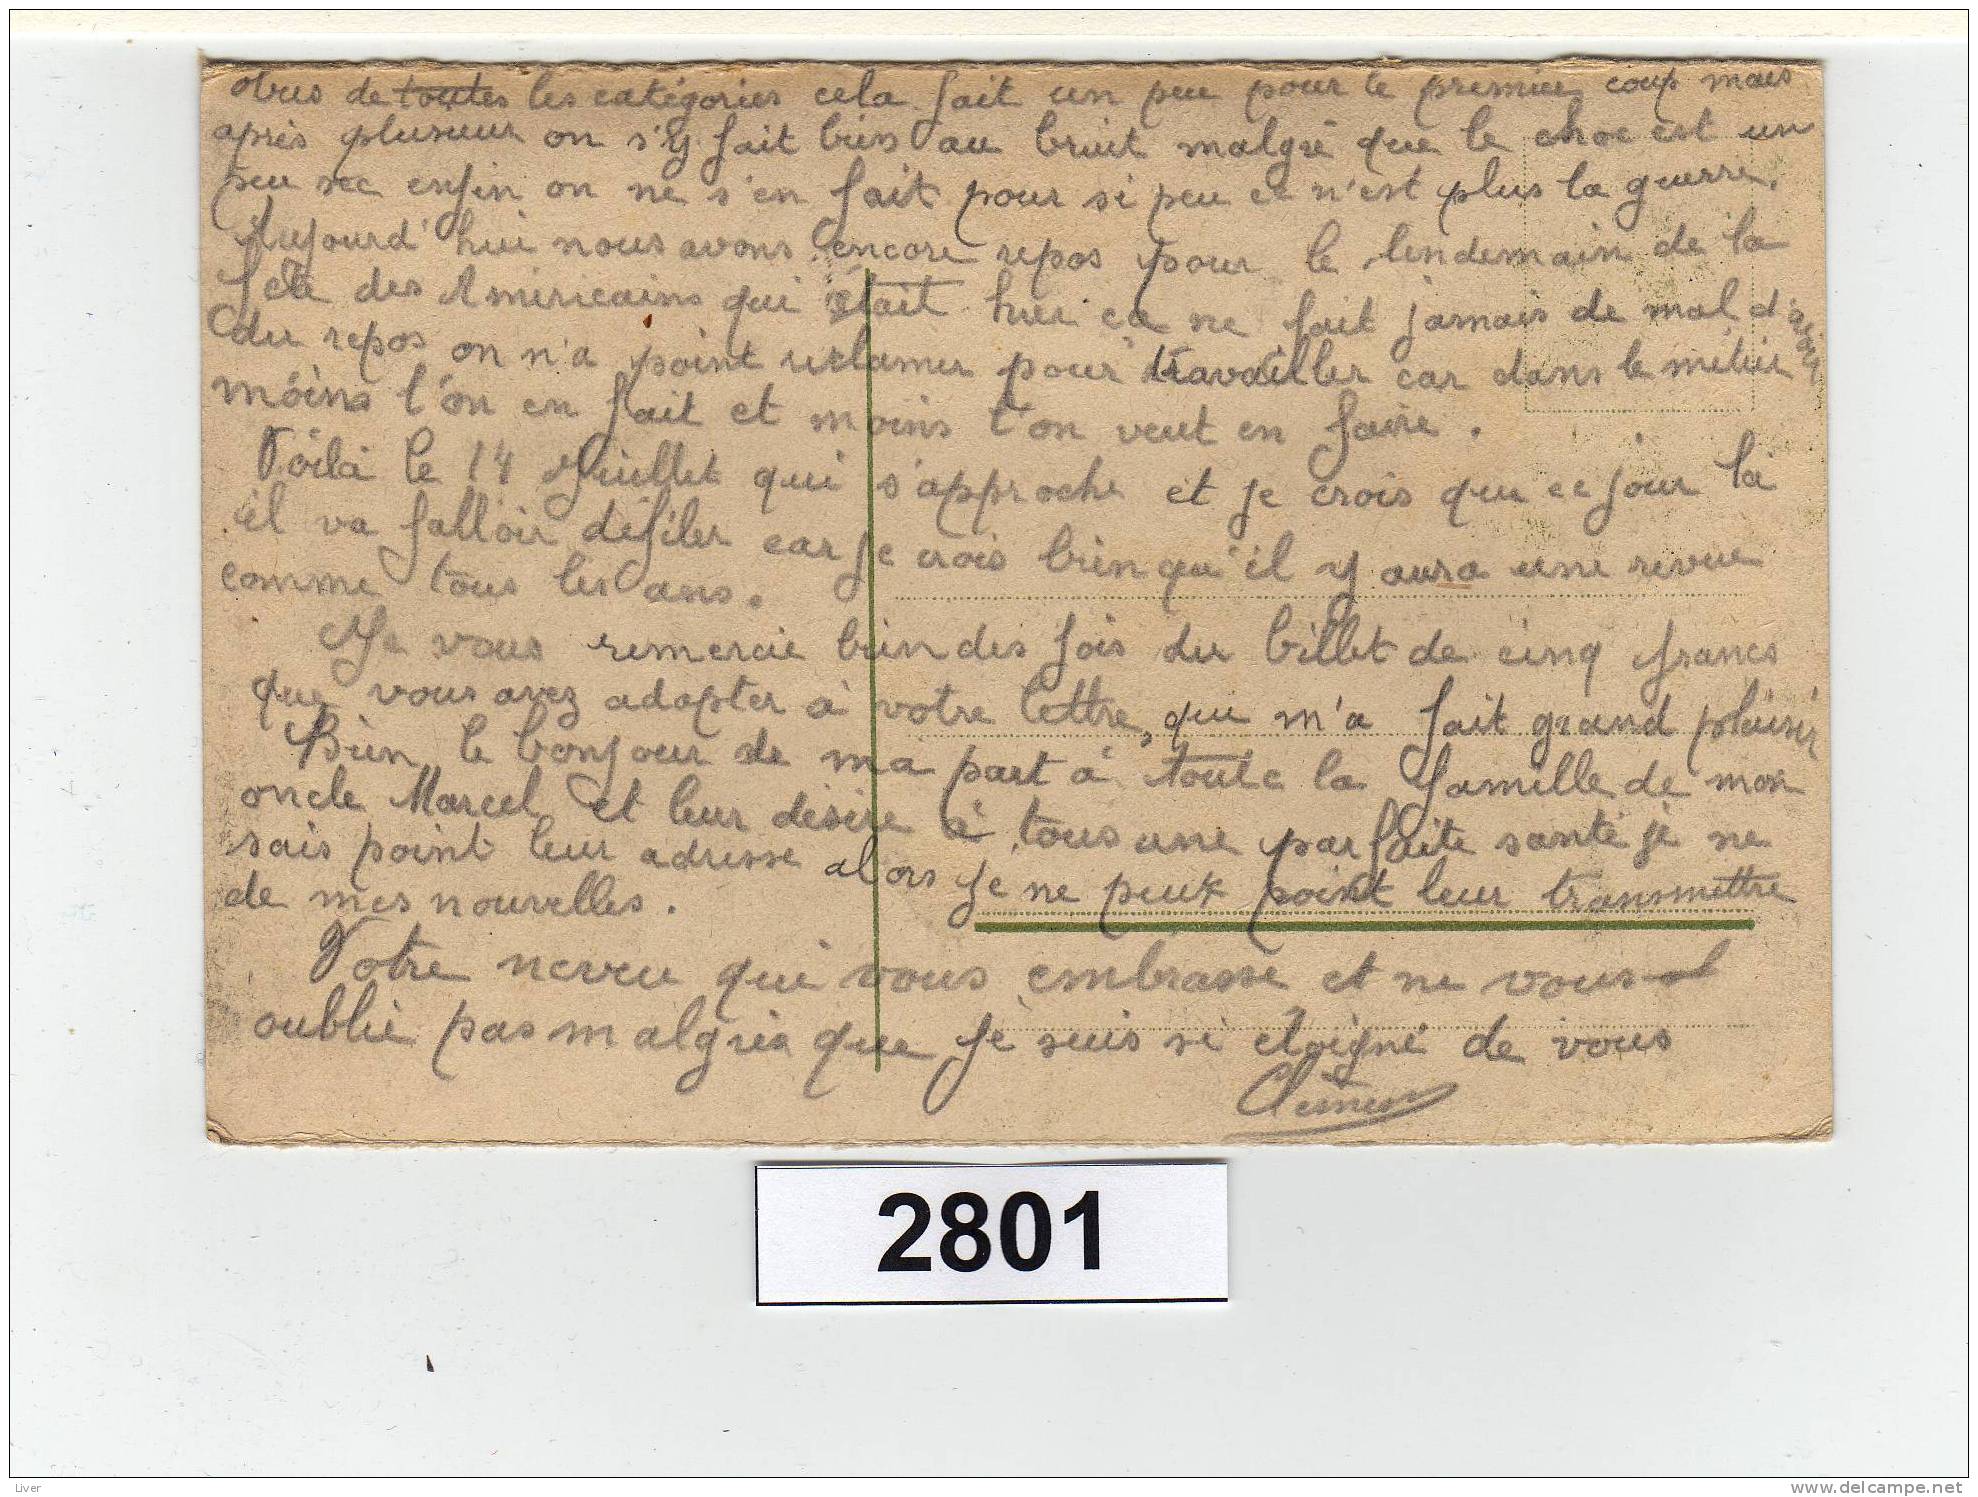 obus de toutes les catégories cela fait un peu pour le premier coup mais
après plusieur on s'y fait bien au bruit malgré que le choc est un
peu sec enfin on ne s'en fait pour si peu ce n'est plus la guerre.
Aujourd'hui nous avons encore repos pour le lendemain de la
fete des Américains qui était hier ca ne fait jamais de mal d'avoir
du repos on n'a point reclamer pour travailler car dans le métier
moins l'on en fait et moins l'on veut en faire.
Voilà le 14 Juillet qui s'approche et je crois que ce jour la
il va falloir défiler car je crois bien qu'il y aura une revue
comme tous les ans.
Je vous remercie bien des fois du billet de cinq francs
que vous avez adapter à votre lettre, qui m'a fait grand plaisir
Bien le bonjour de ma part à toute la famille de mon
oncle Marcel et leur désire à tous une parfaite santé je ne
sais point leur adresse alors je ne peux point leur transmettre
de mes nouvelles.
Votre neveu qui vous embrasse et ne vous
oublie pas malgrés que je suis si éloigné de vous
2801
Liver
www.delcampe.net